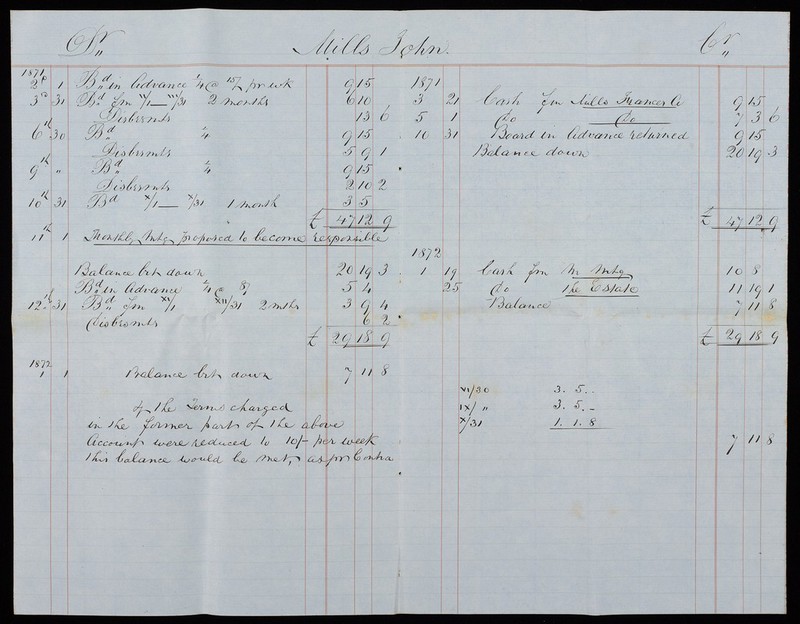 Dr Mills John. Cr
1871
2d 1 Bd in Advance 1/4 @ 15/ pr wk 9 15
3d 31 Bd fm 2 months 6 10
Disbrsmts 13 6
6th 30 Bd 1/4 9 15
Disbrsmts 5 9 1
9th " Bd 1/4 9 15
Disbrsmts 2 10 2
10th 31 Bd X/1 — X/31 1 month 3 5
£ 47 12 9
11th 1 Monthly proposed to become responsible
Balance brt down 20 19 3
Bd in Advance 1/4 @ 8/ 5 4
12th 31 Bd fm XI/1 XII/31 2 mths 3 9 4
Disbrsmts 6 2
£ 29 18 9
1872
1 1 Balance brt down 7 11 8
If the Terms charged
in the former part of the above
Account were reduced to 10/- per week
this balance would be met, as pr Contra
1871
3 21 Cash fm Mills Frances C 9 15
5 1 Do Do 7 3 6
10 31 Board in Advance returned 9 15
Balance down 20 19 3
£ 47 12 9
1872
1 19 Cash fm 10 8
25 Do the Estate 11 19 1
Balance 7 11 8
£ 29 18 9
VI/30 3. 5. -
IX/ " 3. 5. -
X/31 1. 1. 8
7 11 8